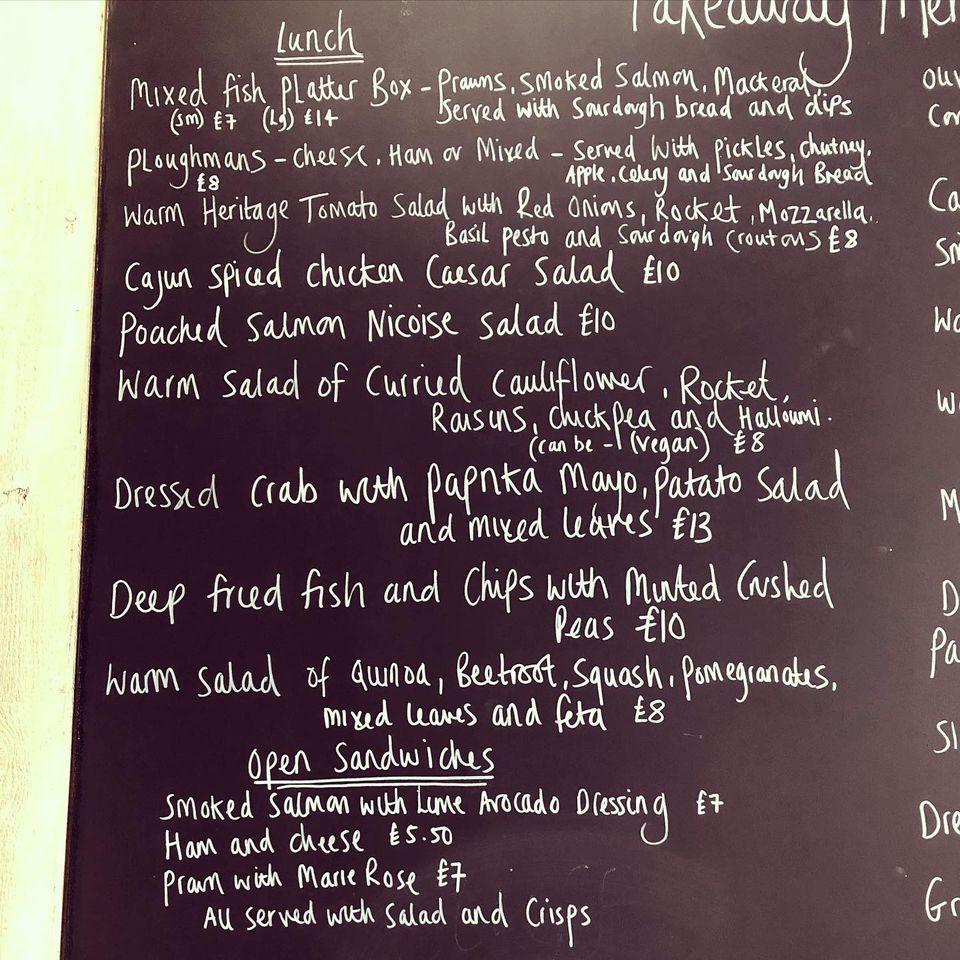 Takeaway Men
Lunch
Mixed fish Platter Box - Prawns, Smoked Salmon, Mackeral,
(sm) £7 (Lg) £14 Served with Sourdough bread and dips
Ploughmans - cheese, Ham or Mixed - Served with pickles, chutney,
£8 Apple, Celery and Sourdough Bread
Warm Heritage Tomato Salad with Red Onions, Rocket, Mozzarella,
Basil pesto and Sourdough Croutons £8
Cajun Spiced Chicken Caesar Salad £10
Poached Salmon Nicoise Salad £10
Warm Salad of Curried Cauliflower, Rocket,
Raisins, chickpea and Halloumi.
(can be - (vegan) £8
Dressed Crab with paprika Mayo, patato Salad
and mixed leaves £13
Deep fried fish and Chips with Minted Crushed
Peas £10
Warm Salad of Quinoa, Beetroot, Squash, Pomegranates,
mixed leaves and feta £8
Open Sandwiches
Smoked Salmon with Lime Avocado Dressing £7
Ham and cheese £5.50
Prawn with Marie Rose £7
All served with Salad and Crisps
Ca
Wa
M
D
Pa
Sl
Dre
Gr